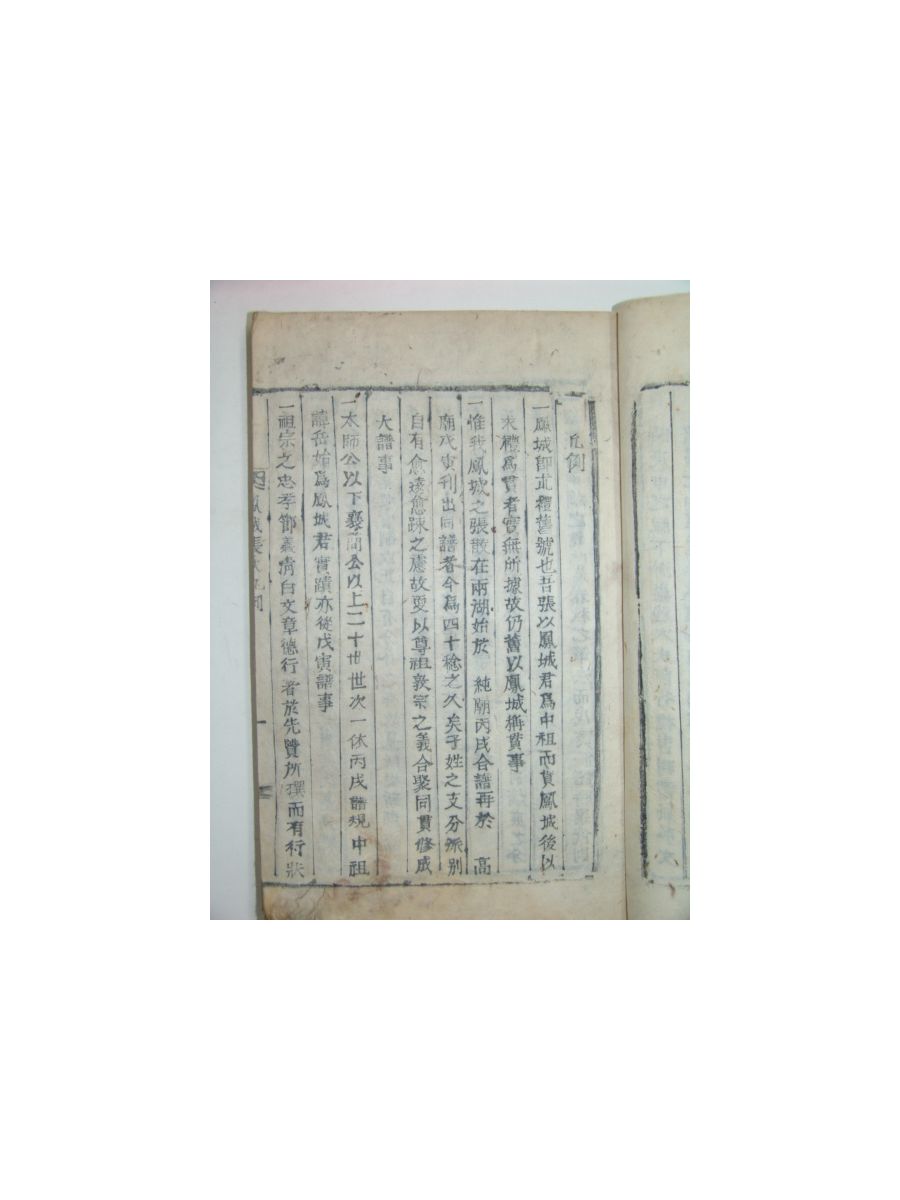 凡例
一鳳城卽求禮舊號也吾張以鳳城君爲中祖而貫鳳城後以
求禮爲貫者實無所據故仍舊以鳳城稱貫事
一惟我鳳城之張散在兩湖始於 純廟丙戌合譜再於 高
廟戊寅刊出同譜者今爲四十稔之久矣子姓之支分派別
自有愈遠愈踈之慮故更以尊祖敦宗之義合聚同貫修成
大譜事
一太師公以下襄簡公以上二十世世次一依丙戌譜規中祖
諱岳始爲鳳城君實蹟亦從戊寅譜事
一祖宗之忠孝節義淸白文章德行者於先賢所撰而有行狀
鳳城張氏凡例 一